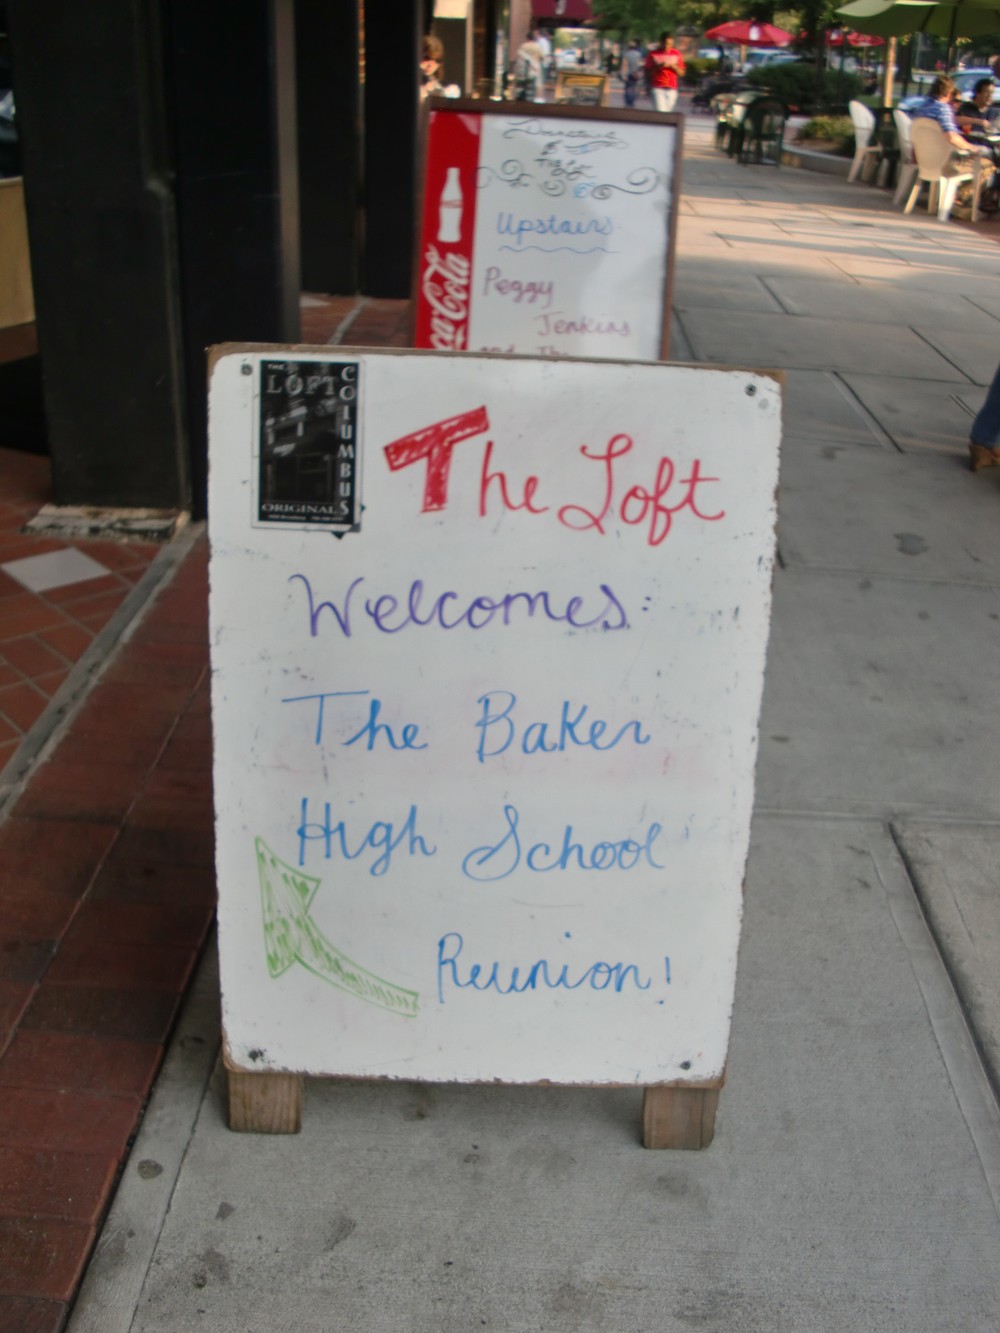 The Loft
Upstairs
Peggy
Jenkins
and The
Coca-Cola
THE
LOFT
COLUMBUS
ORIGINALS
The Loft
Welcomes:
The Baker
High School
Reunion!